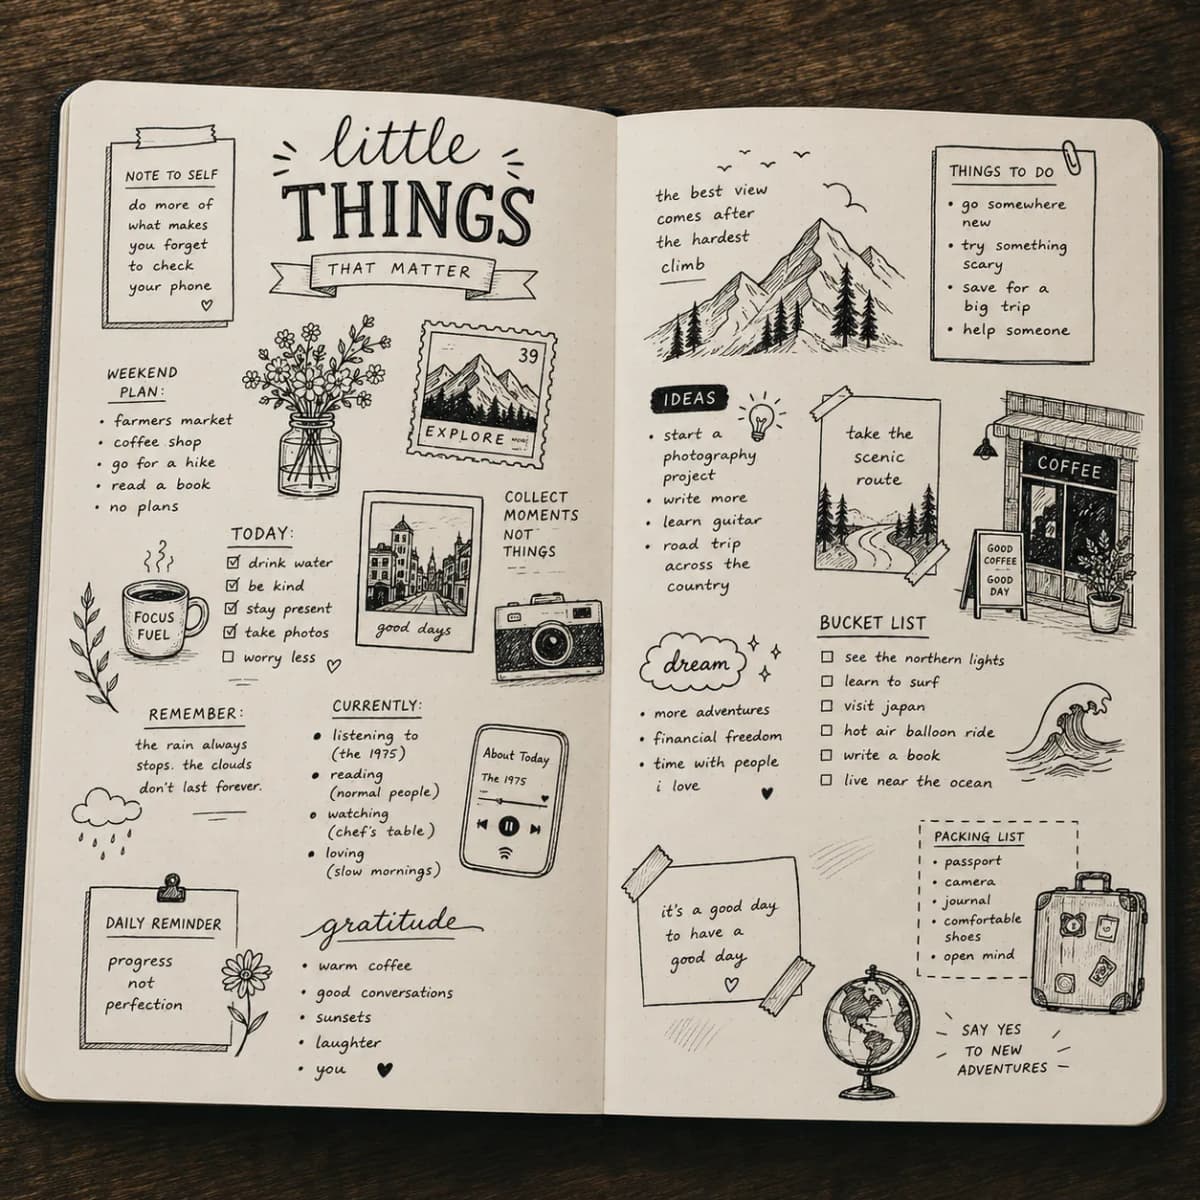 NOTE TO SELF
do more of
what makes
you forget
to check
your phone
little
THINGS
THAT MATTER
WEEKEND
PLAN:
• farmers market
• coffee shop
• go for a hike
• read a book
• no plans
39
EXPLORE MORE
COLLECT
MOMENTS
NOT
THINGS
TODAY:
☑ drink water
☑ be kind
☑ stay present
☑ take photos
☐ worry less
FOCUS
FUEL
good days
REMEMBER:
the rain always
stops. the clouds
don't last forever.
CURRENTLY:
• listening to
(the 1975)
• reading
(normal people)
• watching
(chef's table)
• loving
(slow mornings)
About Today
The 1975
DAILY REMINDER
progress
not
perfection
gratitude
• warm coffee
• good conversations
• sunsets
• laughter
• you
the best view
comes after
the hardest
climb
THINGS TO DO
• go somewhere
new
• try something
scary
• save for a
big trip
• help someone
IDEAS
• start a
photography
project
• write more
• learn guitar
• road trip
across the
country
take the
scenic
route
COFFEE
GOOD
COFFEE
GOOD
DAY
dream
• more adventures
• financial freedom
• time with people
i love
BUCKET LIST
☐ see the northern lights
☐ learn to surf
☐ visit japan
☐ hot air balloon ride
☐ write a book
☐ live near the ocean
it's a good day
to have a
good day
PACKING LIST
• passport
• camera
• journal
• comfortable
shoes
• open mind
SAY YES
TO NEW
ADVENTURES